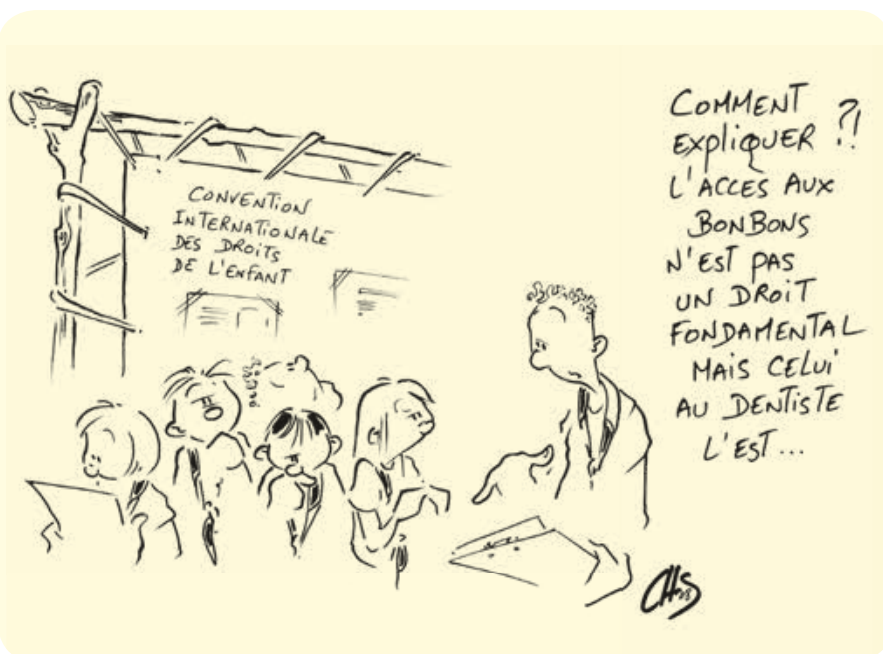 CONVENTION
INTERNATIONALE
DES DROITS
DE L'ENFANT
COMMENT
EXPLIQUER ?!
L'ACCÈS AUX
BONBONS
N'EST PAS
UN DROIT
FONDAMENTAL
MAIS CELUI
AU DENTISTE
L'EST...